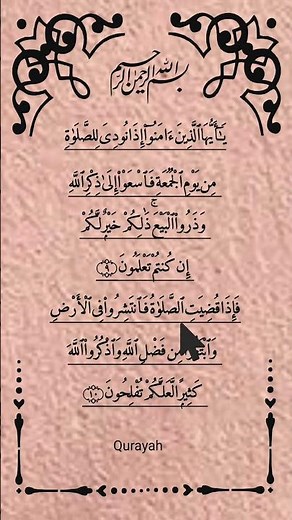 بسم الله الرحمن الرحيم
يَٰٓأَيُّهَا ٱلَّذِينَ ءَامَنُوٓا۟ إِذَا نُودِىَ لِلصَّلَوٰةِ
مِن يَوْمِ ٱلْجُمُعَةِ فَٱسْعَوْا۟ إِلَىٰ ذِكْرِ ٱللَّهِ
وَذَرُوا۟ ٱلْبَيْعَ ۚ ذَٰلِكُمْ خَيْرٌ لَّكُمْ
إِن كُنتُمْ تَعْلَمُونَ ٩
فَإِذَا قُضِيَتِ ٱلصَّلَوٰةُ فَٱنتَشِرُوا۟ فِى ٱلْأَرْضِ
مِن فَضْلِ ٱللَّهِ وَٱذْكُرُوا۟ ٱللَّهَ
كَثِيرًا لَّعَلَّكُمْ تُفْلِحُونَ ١٠
Qurayah